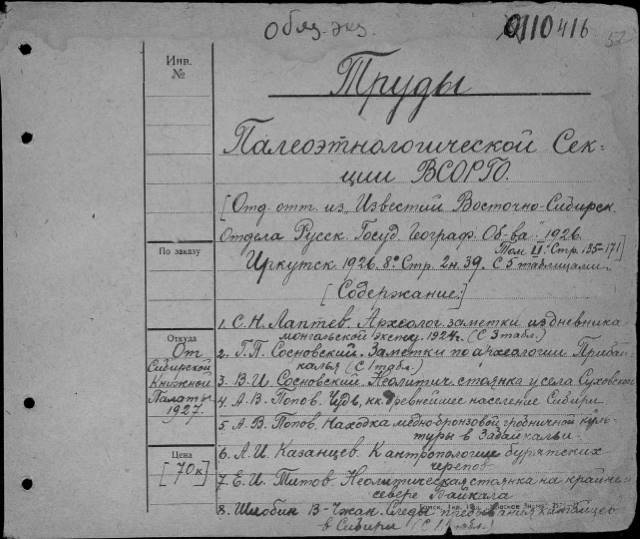 Обяз. экз.
0110416
52
Инв.
№
Труды
Палеоэтнологической Сек-
ции ВСОРГО.
[Отд. отт. из „Известий Восточно-Сибирск.
отдела Русск. Госуд. Географ. Об-ва" 1926.
Том LI. Стр. 135-171]
По заказу
Иркутск. 1926. 8° Стр. 2н. 39. С 5 таблицами.
[Содержание:]
1. С. Н. Лаптев. Археолог. заметки из дневника
монгольской эксп. 1924г. (С 3 табл.)
Откуда
От
Сибирской
Книжной
Палаты
1927.
2. Г. П. Сосновский. Заметки по археологии Прибай-
калья (С 1 табл.)
3. В. И. Сосновский. Неолитич. стоянка у села Суховского
4. А. В. Попов. Чудь, как древнейшее население Сибири.
5. А. В. Попов. Находка медно-бронзовой гробничной куль-
туры в Забайкальи.
Цена
[70к]
6. А. И. Казанцев. К антропологии бурятских
черепов
7. Е. И. Титов. Неолитическая стоянка на крайнем
севере Байкала
8. Шлобин В-Чжан. Следы пребывания китайцев
в Сибири (С 1 табл.)